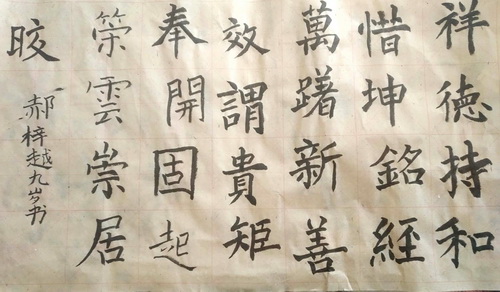 祥德持和
惜坤銘經
萬躇新善
效謂貴矩
奉開固起
築雲崇居
晈
郝梓越九岁书